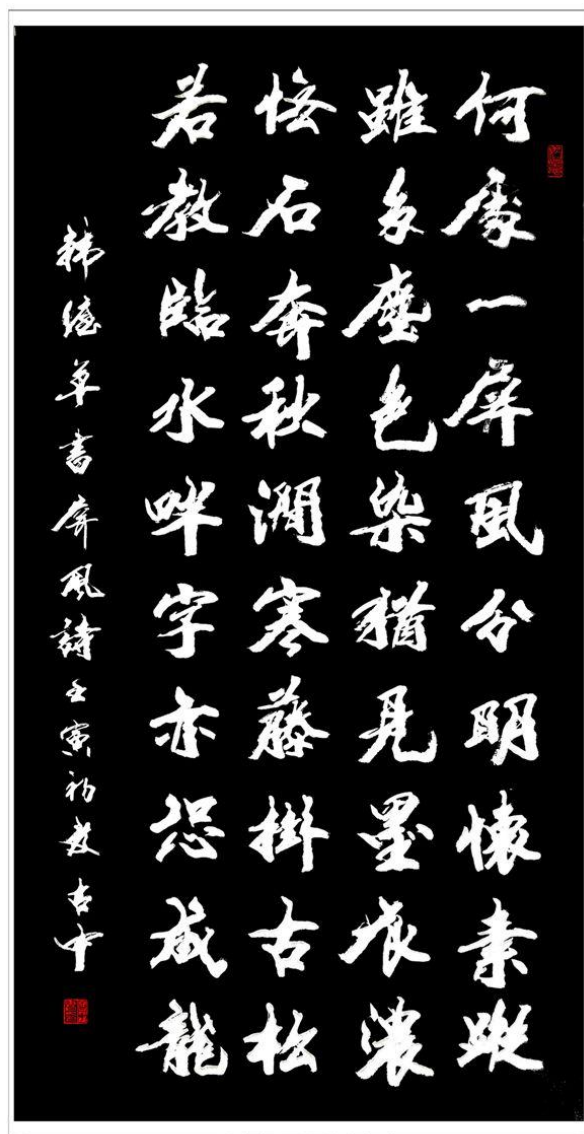 何處一屏風分明懷素蹤
雖多塵色染猶見墨痕濃
恠石奔秋澗寒藤掛古松
若教臨水畔字亦恐成龍
韓偓草書屏風詩壬寅初夏吉中